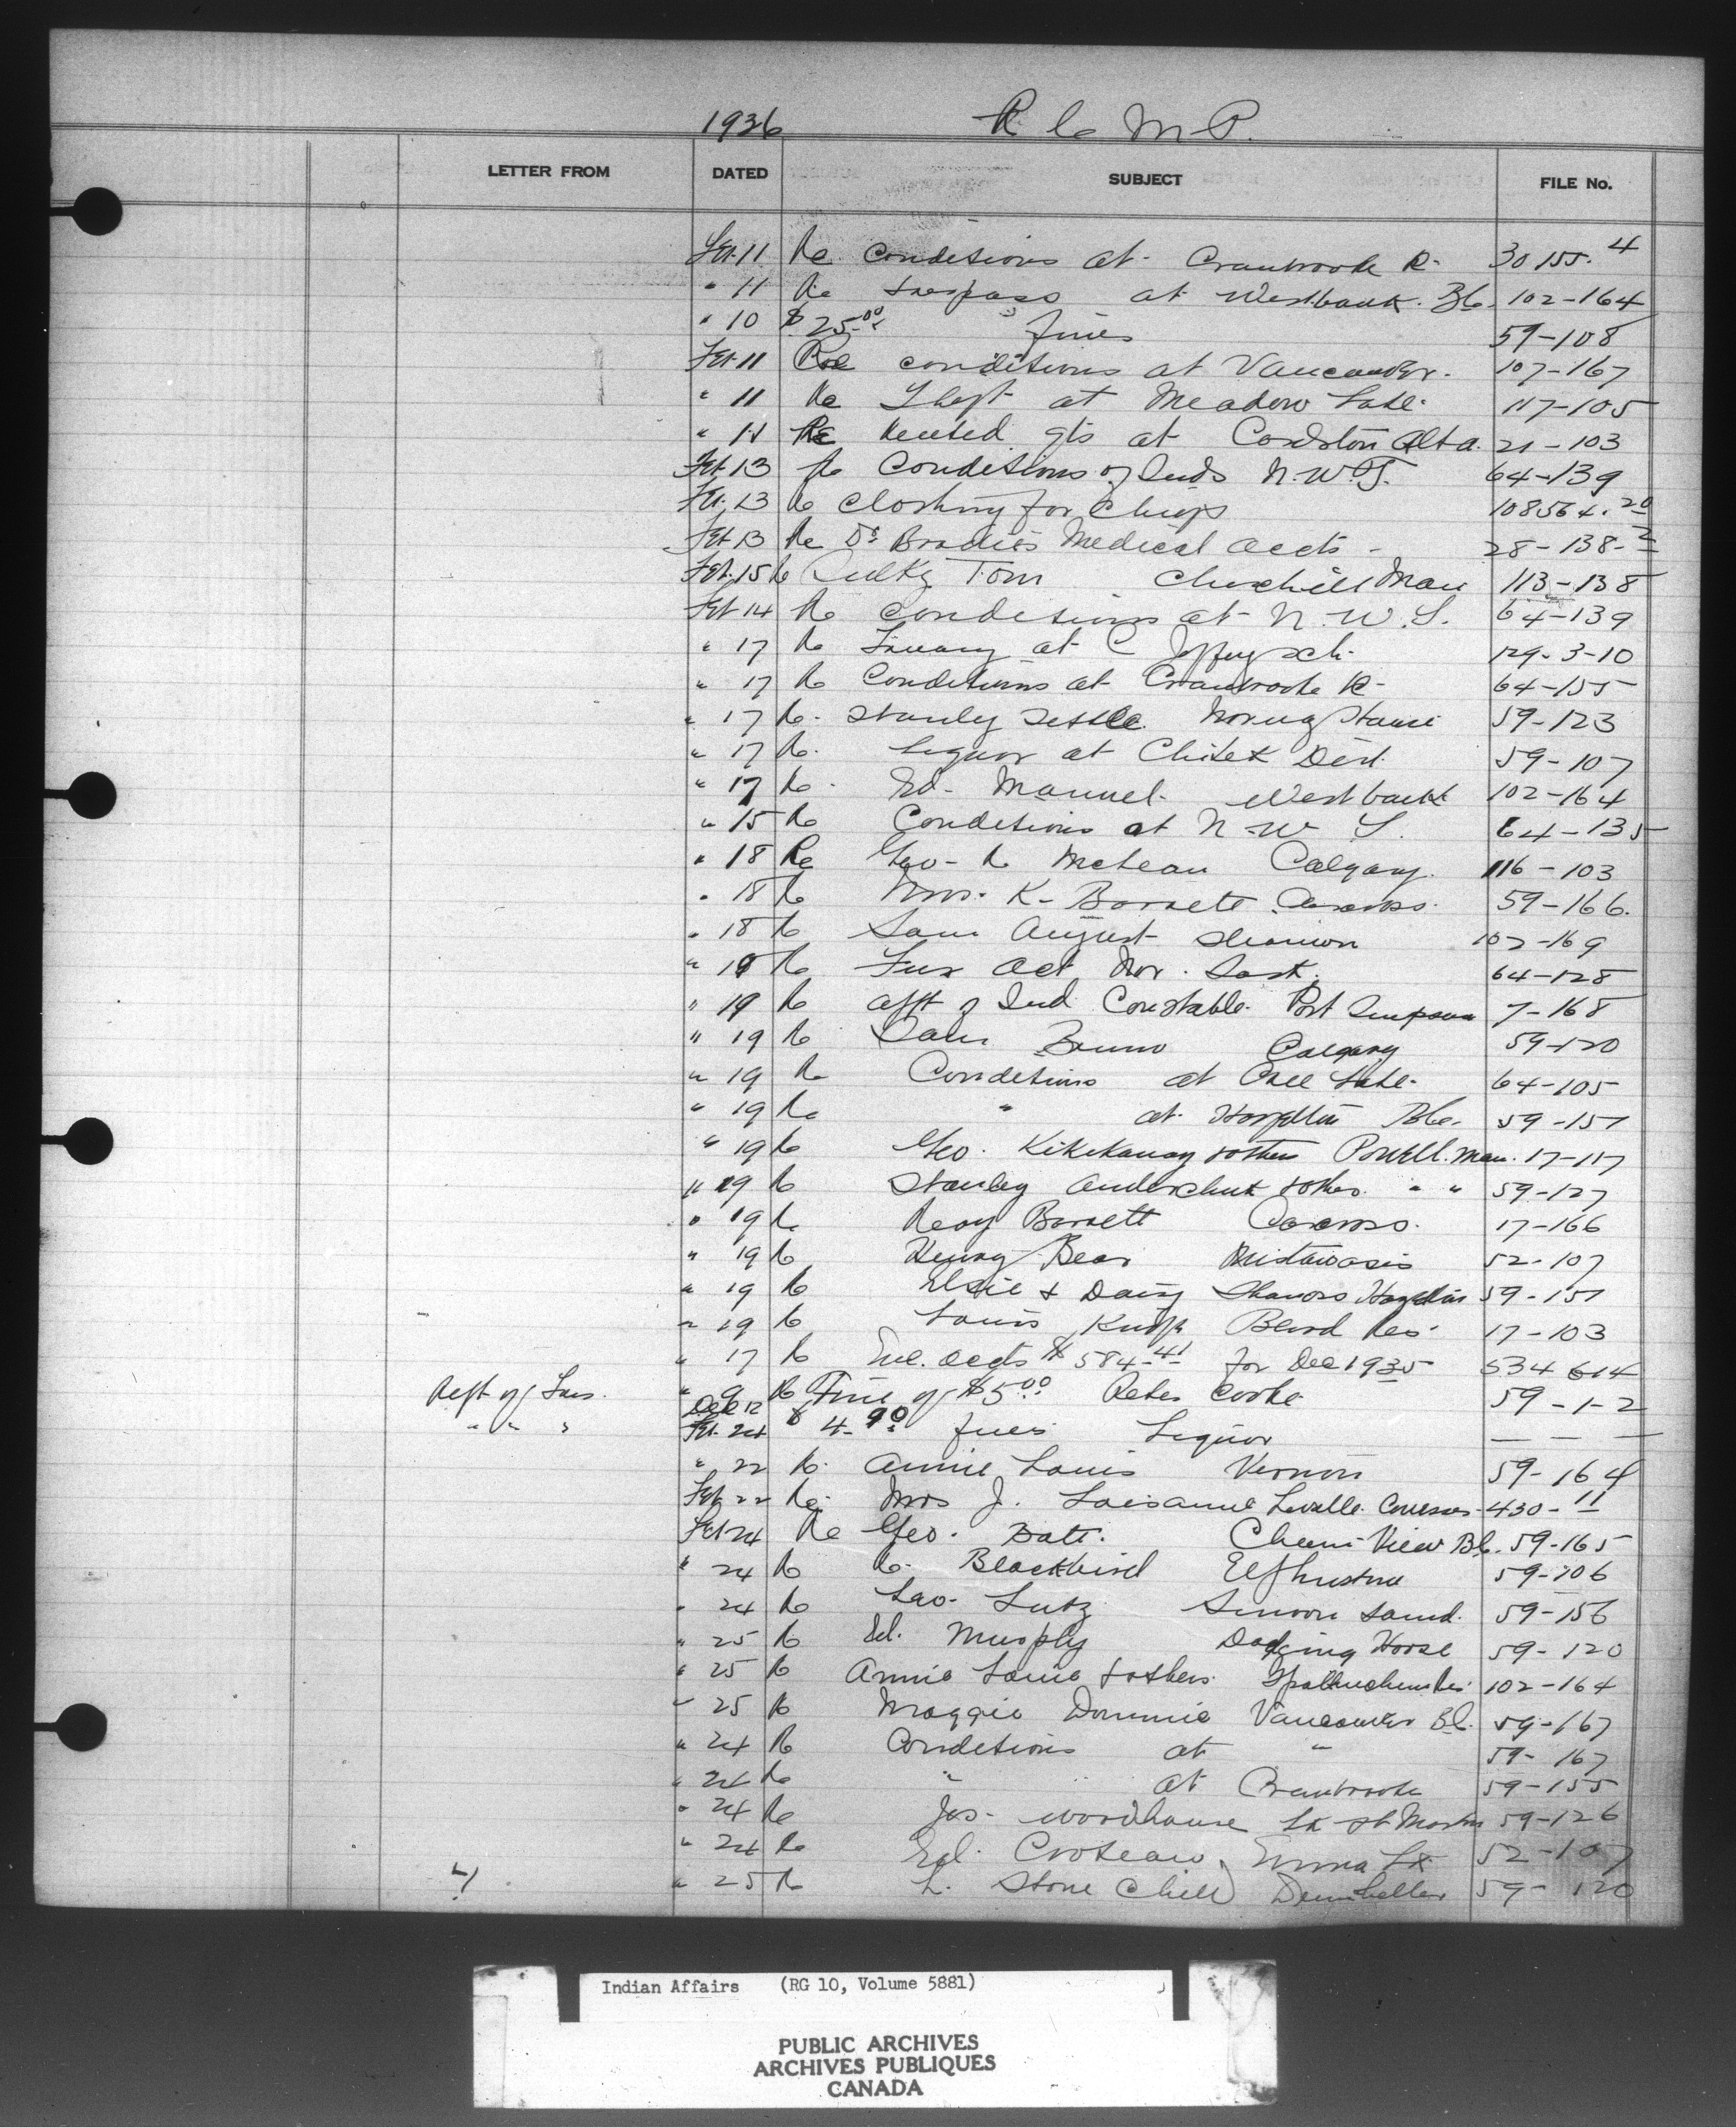 1936 R C M P.
LETTER FROM DATED SUBJECT FILE No.
Feb. 11 Re conditions at Cranbrook R- 30155-4
" 11 Re trespass at Westbank. B.C. 102-164
" 10 $25.00 fines 59-108
Feb 11 Re conditions at Vancouver. 107-167
" 11 Re Theft at Meadow Lake. 117-105
" 11 Re rented at Cardston Alta. 21-103
Feb 13 Re Conditions of Inds N.W.T. 64-139
Feb. 13 Re Clothing for Chiefs 108564-20
Feb 13 Re Dr Brodies Medical accts - 28-138-2
Feb. 15 Re Tom Churchill Man 113-138
Feb 14 Re conditions at N.W.T. 64-139
" 17 Re at 129-3-10
" 17 Re Conditions at Cranbrook R- 64-155
" 17 Re. Stanley Settle. Norway House 59-123
" 17 Re. Liquor at Chitek Dist. 59-107
" 17 Re. Ed. Manuel. Westbank 102-164
" 15 Re Conditions at N.W T. 64-135
" 18 Re Geo- R McLean Calgary. 116-103
" 18 Re Mrs. K- Barrett Carcross. 59-166.
" 18 Re Sam August 102-169
" 18 Re Fur Act Nor. Sask. 64-128
" 19 Re appt of Ind Constable. Port Simpson 7-168
" 19 Re Bruno Calgary 59-120
" 19 Re Conditions at Lake. 64-105
" 19 Re " at Hazelton B.C. 59-157
" 19 Re Geo. Kikekanay & others Powell. Man. 17-117
" 19 Re Stanley & others. " " 59-127
" 19 Re Barrett Carcross. 17-166
" 19 Re Henry Bear Mistawasis 52-107
" 19 Re Elsie & Daisy Hazelton 59-157
" 19 Re Louis Blood Res. 17-103
" 17 Re Enc. accts $584.41 for Dec 1935 534614
Dept of Jus. " 9 Re Fine of $5.00 Peter Cooke 59-1-2
Dec 12
" " " Feb. 24 $4.90 fines Liquor — — —
" 22 Re. Annie Louis Vernon 59-164
Feb 22 Re. Mrs J. 430-11
Feb 24 Re Geo. Batt. Cheam View B.C. 59-165
" 24 Re R. Blackbird Elphinstone 59-106
" 24 Re Leo. Lutz Simoon Sound. 59-156
" 25 Re Ed. Murphy Dodging Horse 59-120
" 25 Re Annie Louie & others. Spallumcheen Res. 102-164
" 25 Re Maggie Dominic Vancouver B.C. 59-167
" 24 Re Conditions at " 59-167
" 24 Re " " at Cranbrook 59-155
" 24 Re Jos. Woodhouse Lk St Martin 59-126
" 24 Re Ed. Croteau, Emma Lk 52-107
" 25 Re L. Stone Child Drumheller 59-120
Indian Affairs (RG 10, Volume 5881)
PUBLIC ARCHIVES
ARCHIVES PUBLIQUES
CANADA